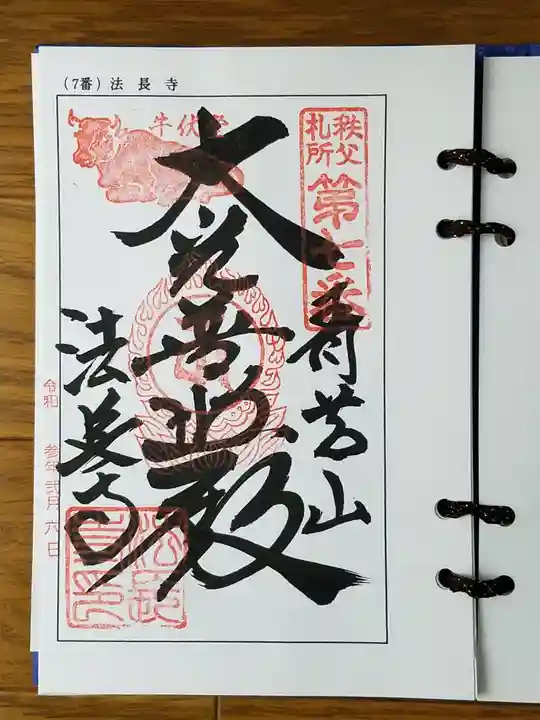 (7番) 法長寺
牛伏堂
秩父
札所
第七番
青苔山
大光普照殿
法長寺
令和 参年 弐月 六日